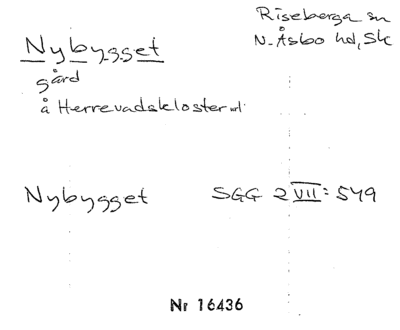 Riseberga sn
Nybygget
N. Åsbo hd, Sk
gård
å Herrevadskloster
Nybygget SGG 2 VII: 549
Nr 16436